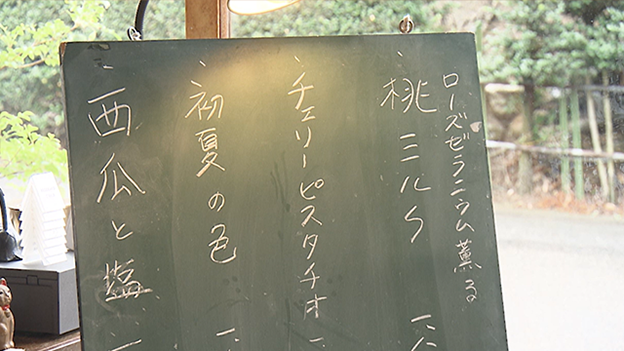 ローズゼラニウム薫る
、桃ミルク
、チェリーピスタチオ
、初夏の色
、西瓜と塩